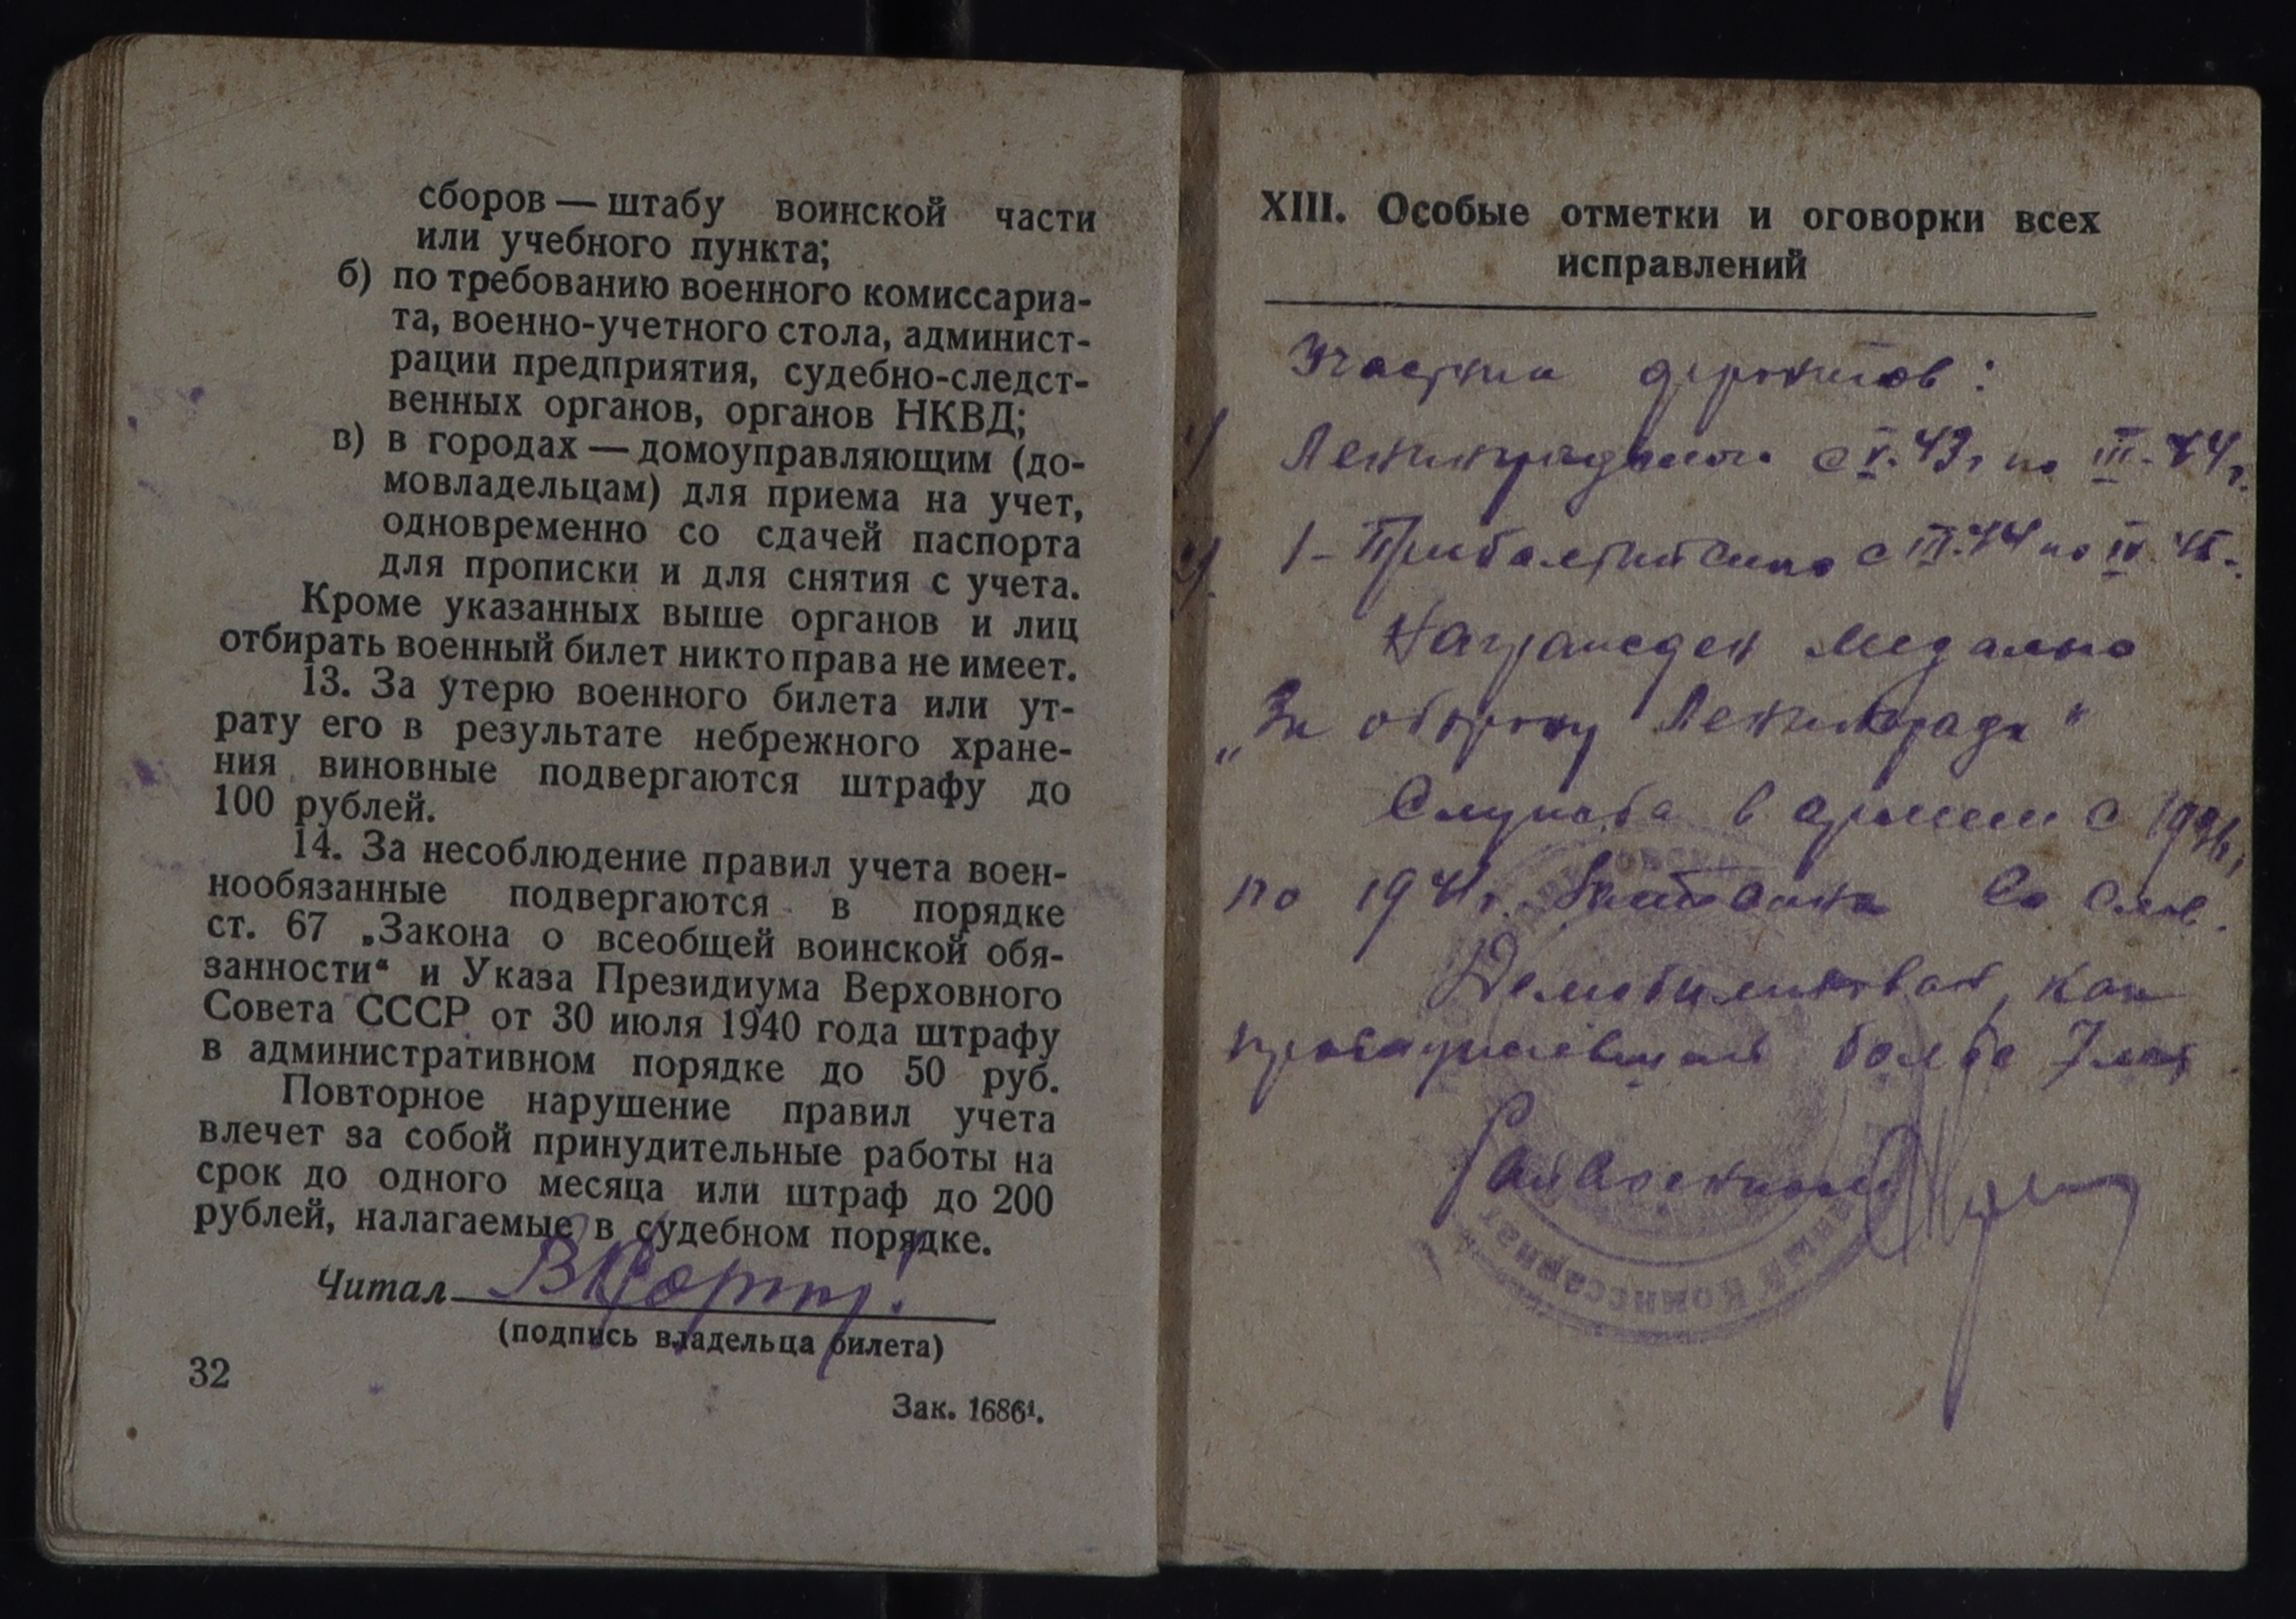 сборов — штабу воинской части
или учебного пункта;
б) по требованию военного комиссариа-
та, военно-учетного стола, админист-
рации предприятия, судебно-следст-
венных органов, органов НКВД;
в) в городах — домоуправляющим (до-
мовладельцам) для приема на учет,
одновременно со сдачей паспорта
для прописки и для снятия с учета.
Кроме указанных выше органов и лиц
отбирать военный билет никто права не имеет.
13. За утерю военного билета или ут-
рату его в результате небрежного хране-
ния виновные подвергаются штрафу до
100 рублей.
14. За несоблюдение правил учета воен-
нообязанные подвергаются в порядке
ст. 67 „Закона о всеобщей воинской обя-
занности“ и Указа Президиума Верховного
Совета СССР от 30 июля 1940 года штрафу
в административном порядке до 50 руб.
Повторное нарушение правил учета
влечет за собой принудительные работы на
срок до одного месяца или штраф до 200
рублей, налагаемые в судебном порядке.
Читал
(подпись владельца билета)
32
Зак. 16861.
XIII. Особые отметки и оговорки всех
исправлений
Участник фронтов:
1) Ленинградского с V.43г по III-44г.
2). 1-Прибалтийского с III.44 по IV.45-
Награжден медалью
„За оборону Ленинграда“
Служба в армии с
по 1941г. записана со слов.
Демобилизован, как
прослуживший более 7 лет
Райвоенком
Военный Комиссариат